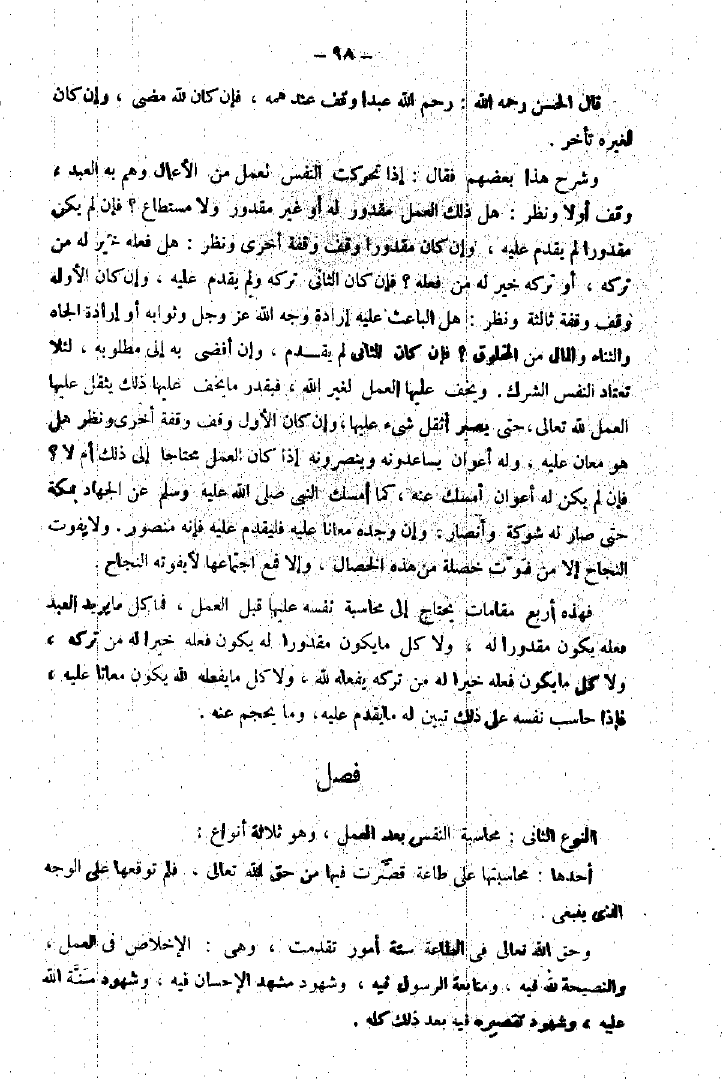 — ٩٨ —
قال الحسن رحمه الله : رحم الله عبدا وقف عند همه ، فإن كان لله مضى ، وإن كان
لغيره تأخر .
وشرح هذا بعضهم فقال : إذا تحركت النفس لعمل من الأعمال وهم به العبد ،
وقف أولا ونظر : هل ذلك العمل مقدور له أو غير مقدور ولا مستطاع ؟ فإن لم يكن
مقدورا لم يقدم عليه ، وإن كان مقدورا وقف وقفة أخرى ونظر : هل فعله خير له من
تركه ، أو تركه خير له من فعله ؟ فإن كان الثانى تركه ولم يقدم عليه ، وإن كان الأول
وقف وقفة ثالثة ونظر : هل الباعث عليه إرادة وجه الله عز وجل وثوابه أو إرادة الجاه
والثناء والمال من المخلوق ؟ فإن كان الثانى لم يقـدم ، وإن أفضى به إلى مطلوبه ، لئلا
تعتاد النفس الشرك . ويخف عليها العمل لغير الله ، فبقدر ما يخف عليها ذلك يثقل عليها
العمل لله تعالى ، حتى يصير أثقل شىء عليها ، وإن كان الأول وقف وقفة أخرى ونظر هل
هو معان عليه ، وله أعوان يساعدونه وينصرونه إذا كان العمل محتاجا إلى ذلك أم لا ؟
فإن لم يكن له أعوان أمسك عنه ، كما أمسك النبى صلى الله عليه وسلم عن الجهاد بمكة
حتى صار له شوكة وأنصار . وإن وجده معانا عليه فليقدم عليه فإنه منصور . ولا يفوت
النجاح إلا من فوّت خصلة من هذه الخصال ، وإلا فمع اجتماعها لا يفوته النجاح .
فهذه أربع مقامات يحتاج إلى محاسبة نفسه عليها قبل العمل ، فما كل ما يريد العبد
فعله يكون مقدورا له ، ولا كل ما يكون مقدورا له يكون فعله خيرا له من تركه ،
ولا كل ما يكون فعله خيرا له من تركه يفعله لله ، ولا كل ما يفعله لله يكون معانا عليه ،
فإذا حاسب نفسه على ذلك تبين له ما يقدم عليه ، وما يحجم عنه .
فصل
النوع الثانى : محاسبة النفس بعد العمل ، وهو ثلاثة أنواع :
أحدها : محاسبتها على طاعة قصَّرت فيها من حق الله تعالى ، فلم توقعها على الوجه
الذى ينبغى .
وحق الله تعالى فى الطاعة ستة أمور تقدمت ، وهى : الإخلاص فى العمل ،
والنصيحة لله فيه ، ومتابعة الرسول فيه ، وشهود مشهد الإحسان فيه ، وشهود منَّة الله
عليه ، وشهود تقصيره فيه بعد ذلك كله .